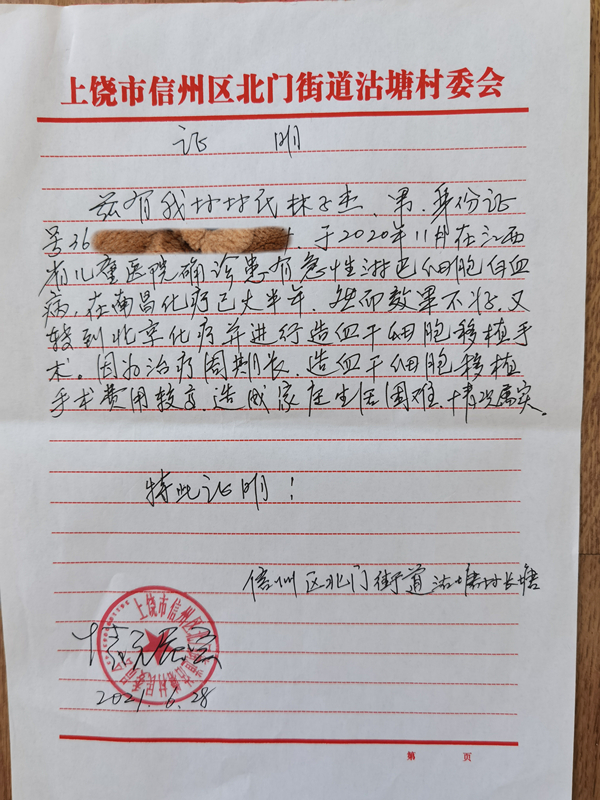 上饶市信州区北门街道沽塘村委会
证 明
兹有我村村民林子杰、男、身份证
号36 ，于2020年11月在江西
省儿童医院确诊患有急性淋巴细胞白血
病，在南昌化疗已大半年，然而效果不好，又
转到北京化疗并进行造血干细胞移植手
术。因为治疗周期长，造血干细胞移植
手术费用较高，造成家庭生活困难，情况属实。
特此证明！
信州区北门街道沽塘村长塘
上饶市信州区北门街道沽塘村民委员会
情况属实
2021.6.28
第 页